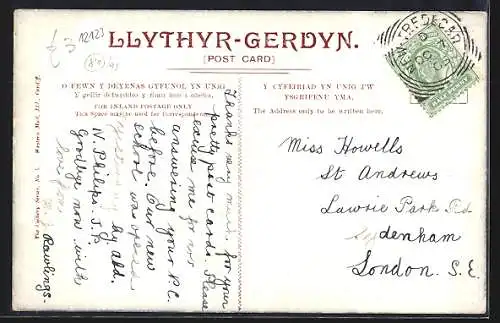 £3
12123
LLYTHYR-GERDYN.
[POST CARD]
O FEWN Y DEYRNAS GYFUNOL YN UNIG
Y gellir defnyddio y rhan hon i ohebu.
FOR INLAND POSTAGE ONLY
This Space may be used for Correspondence.
Y CYFEIRIAD YN UNIG I'W
YSGRIFENU YMA.
The Address only to be written here.
NEW TREDEGAR
Western Mail, Ltd., Cardiff.
Thanks very much for your
pretty post cards. Please
excuse me for not
answering your P.C.
before. Our new
school was opened
yesterday by ald.
N. Philips J.P.
Goodbye now with
love from
Rawlings.
Miss Howells
St Andrews
Lawrie Park Rd
Sydenham
London. S.E.